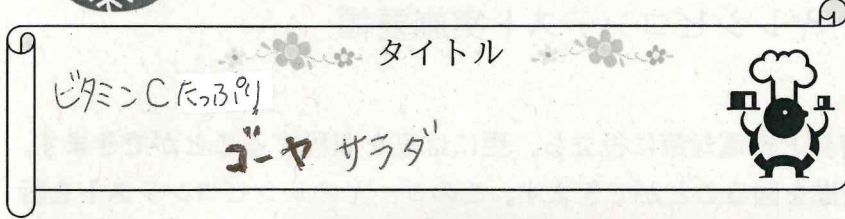 タイトル
ビタミンCたっぷり
ゴーヤ サラダ